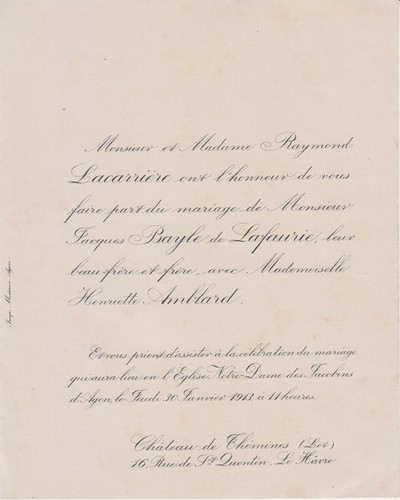 Monsieur et Madame Raymond
Lacarrière ont l'honneur de vous
faire part du mariage de Monsieur
Jacques Bayle de Lafaurie, leur
beau-frère et frère, avec Mademoiselle
Henriette Amblard.
Et vous prient d'assister à la célébration du mariage
qui aura lieu en l'Eglise Notre-Dame des Jacobins
d'Agen, le Jeudi 30 Janvier 1913, à 11 heures.
Château de Thémines (Lot)
16, Rue de St Quentin, Le Hâvre
Agen